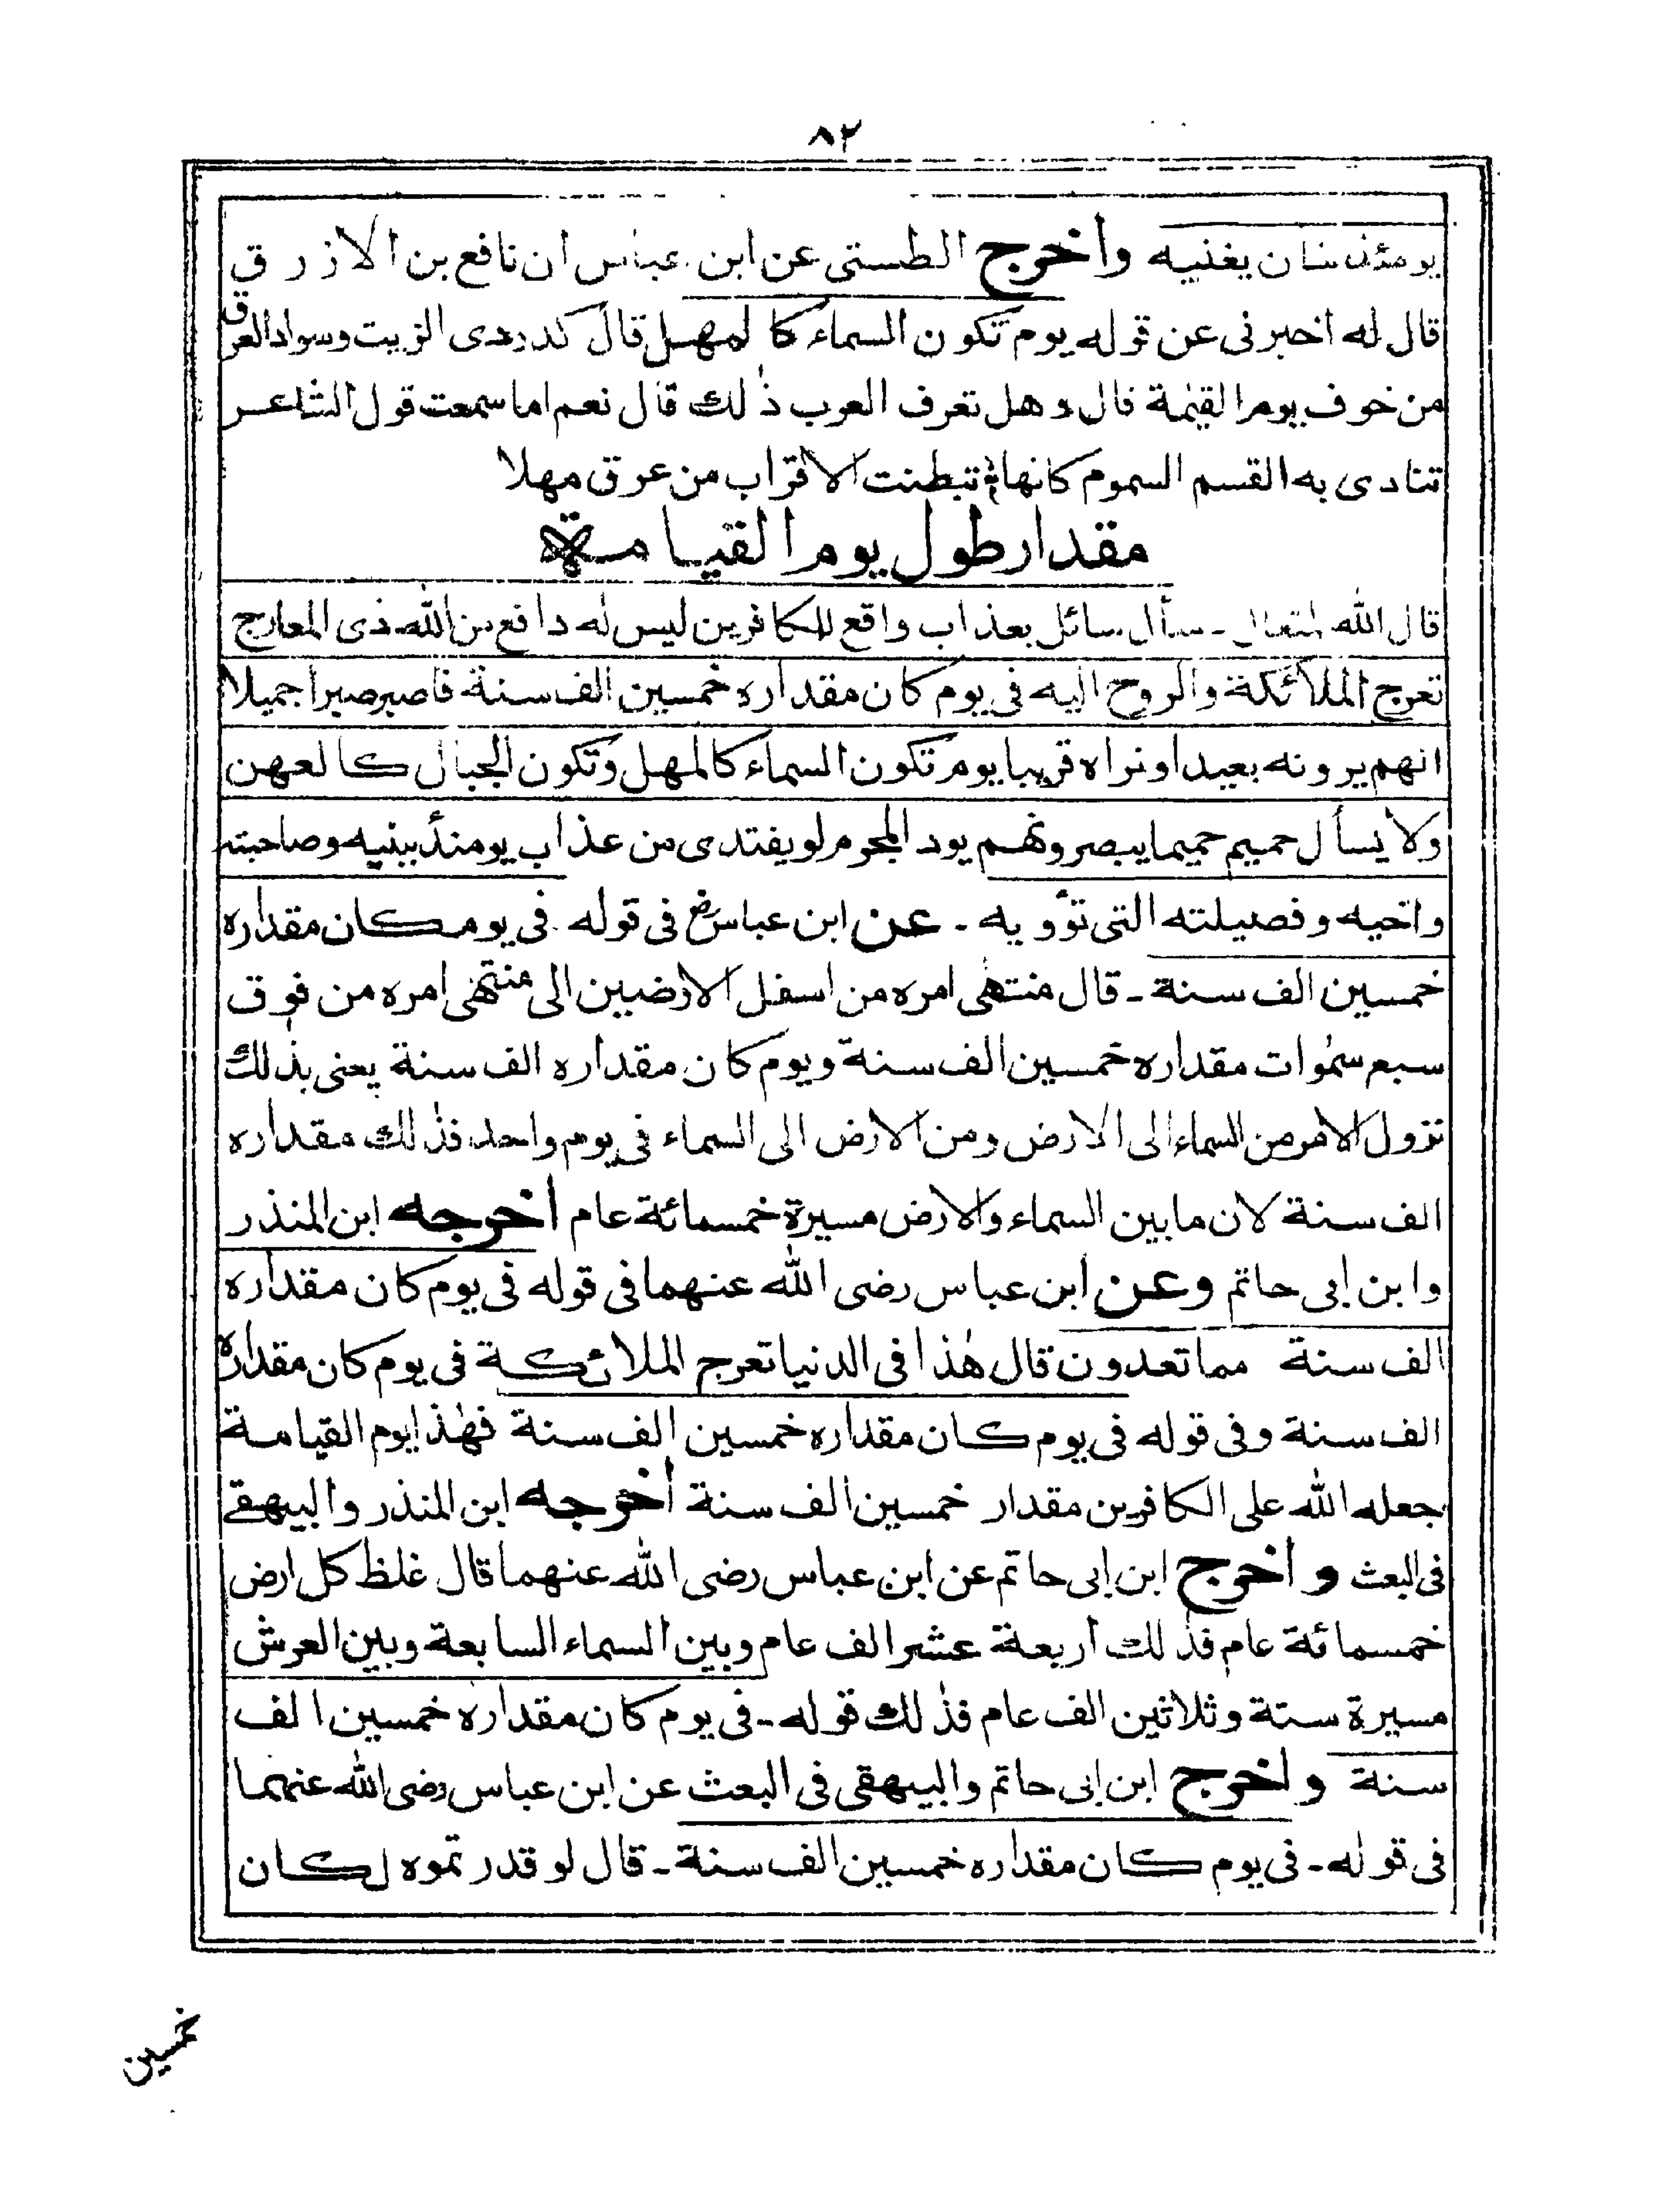 ٨٢
يومئذ شان يغنيه واخرج الطستى عن ابن عباس ان نافع بن الازرق
قال له اخبرنى عن قوله يوم تكون السماء كالمهل قال كدردى الزيت وسواد العرق
من خوف يوم القيٰمة قال وهل تعرف العرب ذٰلك قال نعم اما سمعت قول الشاعر
تنادى به القسم السموم كانها تبطنت الاقراب من عرق مهلا
مقدار طول يوم القيامة
قال الله تعالى ـ سأل سائل بعذاب واقع للكافرين ليس له دافع من الله ذى المعارج
تعرج الملائكة والروح اليه فى يوم كان مقداره خمسين الف سنة فاصبر صبرا جميلا
انهم يرونه بعيدا ونراه قريبا يوم تكون السماء كالمهل وتكون الجبال كالعهن
ولا يسأل حميم حميما يبصرونهم يود المجرم لو يفتدى من عذاب يومئذ ببنيه وصاحبته
واخيه وفصيلته التى تؤويه ـ عن ابن عباس رض فى قوله فى يوم كان مقداره
خمسين الف سنة ـ قال منتهى امره من اسفل الارضين الى منتهى امره من فوق
سبع سمٰوات مقداره خمسين الف سنة ويوم كان مقداره الف سنة يعنى بذٰلك
نزول الامر من السماء الى الارض ومن الارض الى السماء فى يوم واحد فذٰلك مقداره
الف سنة لان ما بين السماء والارض مسيرة خمسمائة عام اخرجه ابن المنذر
وابن ابى حاتم وعن ابن عباس رضى الله عنهما فى قوله فى يوم كان مقداره
الف سنة مما تعدون قال هٰذا فى الدنيا تعرج الملائكة فى يوم كان مقداره
الف سنة وفى قوله فى يوم كان مقداره خمسين الف سنة فهٰذا يوم القيامة
جعله الله على الكافرين مقدار خمسين الف سنة اخرجه ابن المنذر والبيهقے
فى البعث واخرج ابن ابى حاتم عن ابن عباس رضى الله عنهما قال غلظ كل ارض
خمسمائة عام فذٰلك اربعة عشر الف عام وبين السماء السابعة وبين العرش
مسيرة ستة وثلاثين الف عام فذٰلك قوله ـ فى يوم كان مقداره خمسين الف
سنة واخرج ابن ابى حاتم والبيهقى فى البعث عن ابن عباس رضى الله عنهما
فى قوله ـ فى يوم كان مقداره خمسين الف سنة ـ قال لو قدرتموه لكان
خمسين